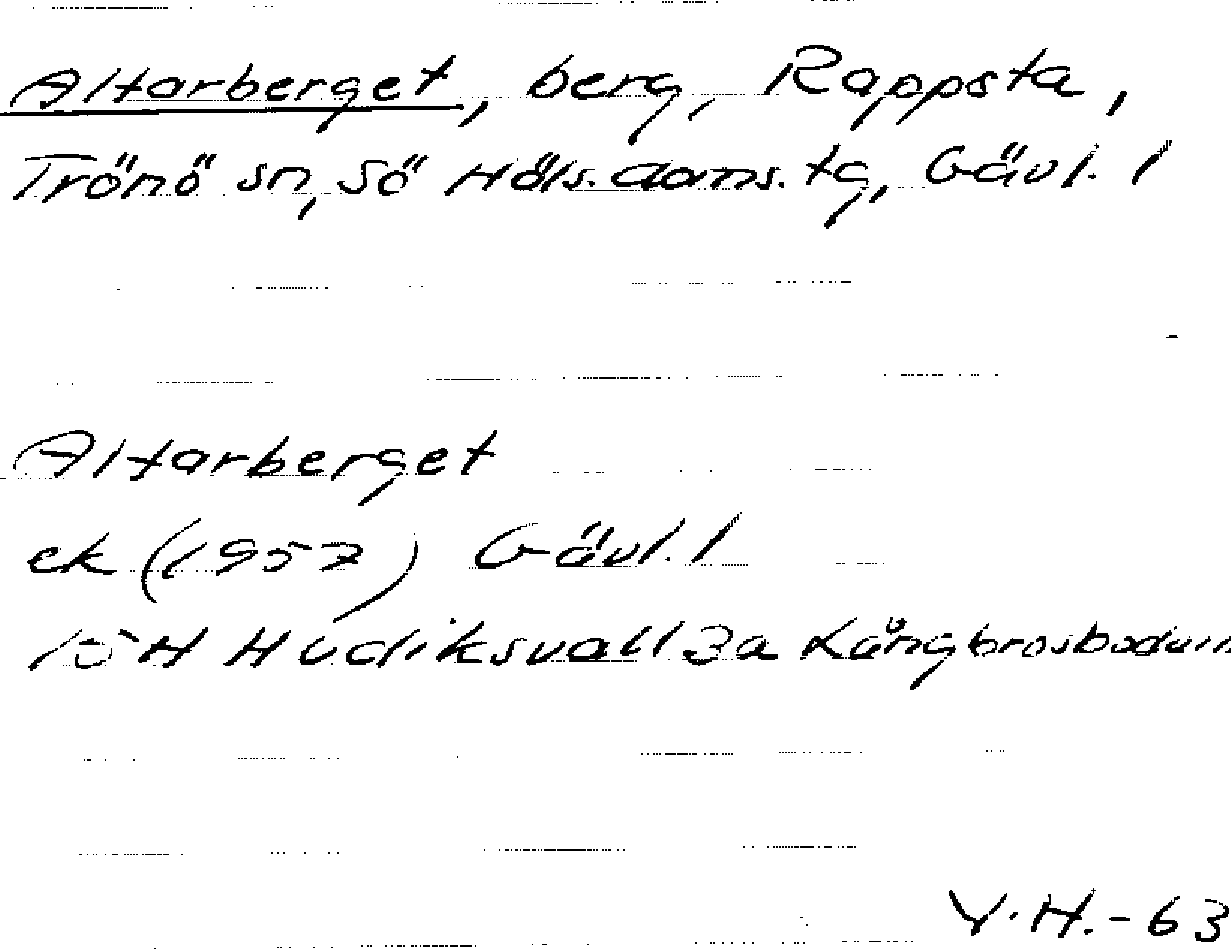 Altarberget, berg, Rappsta,
Trönö sn, Sö Häls. doms. tg, Gävl. l
Altarberget
ek (1957) Gävl. l
15 H Hudiksvall 3a Långbrosbodarn
Y.H.-63